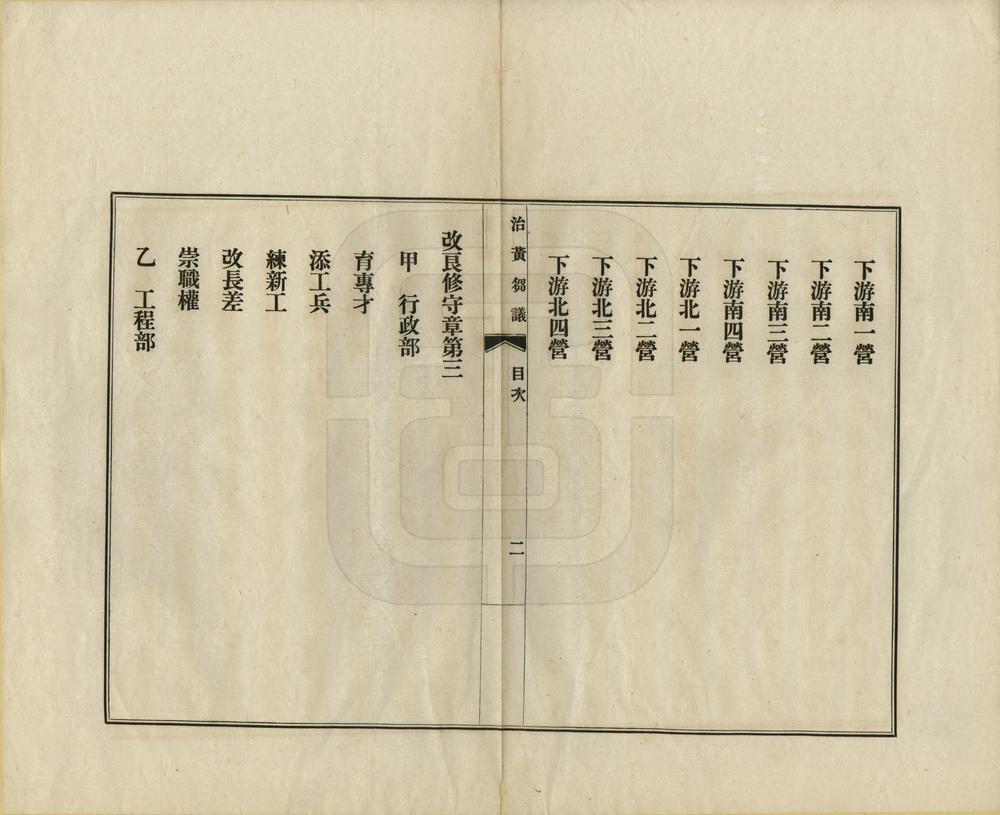 下游南一營
下游南二營
下游南三營
下游南四營
下游北一營
下游北二營
下游北三營
下游北四營
治黃芻議
目次
二
改良修守章第三
甲　行政部
育專才
添工兵
練新工
改長差
崇職權
乙　工程部